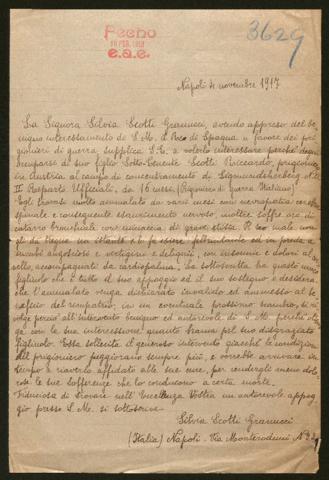 Fecho
16 FEB. 1918
e.a.e.
3629
Napoli 4 novembre 1917
La Signora Silvia Scotti Grannucci, avendo appreso del be-
nigno interessamento de S. M. il Re di Spagna a favore dei pri
gionieri di guerra, supplica S. E. a volersi interessare perchè degni
occuparsi di suo figlio Sotto-Tenente Scotti Riccardo, prigioniero
in Austria al campo di concentramento di Sigmundsherberg N.
II Reparto Ufficiali, da 16 mesi. (Prigioniero di guerra Italiano)
Egli trovasi molto ammalato da varii mesi con nevropatia cerebro
spinale e conseguente esaurimento nervoso, inoltre soffre di
catarro bronchiale con minaccia, di grave etisia. Il suo male non
gli da tregua un istante e lo fa essere febbricitante ed in preda a
incubi angosciosi e vertigini e deliqui, con insonnie e dolori al
petto, accompagnati da cardiopalma. La sottoscritta ha questo unico
figliuolo che è tutto il suo appoggio ed il suo sostegno e desidera
che l'ammalato venga dichiarato invalido ed ammesso al be
neficio del rimpatrio, in un eventuale prossimo scambio, si ri
volge perciò all'intervento benigno ed autorevole di S. M. perchè ot
ga con la sua intercessione quanto brama pel suo disgraziato
figliuolo. Essa sollecita il generoso intervento giacchè le condizioni
del prigioniero peggiorano sempre più, e vorrebbe arrivare in
tempo a riaverlo affidato alle sue cure, per rendergli meno do-
lorose le sue sofferenze che lo conducono a certa morte.
Fiduciosa di trovare nell'Eccellenza Vostra un autorevole appog-
gio presso S. M. si sottoscrive
Silvia Scotti Grannucci
(Italia) Napoli - Via Monteroduni N.